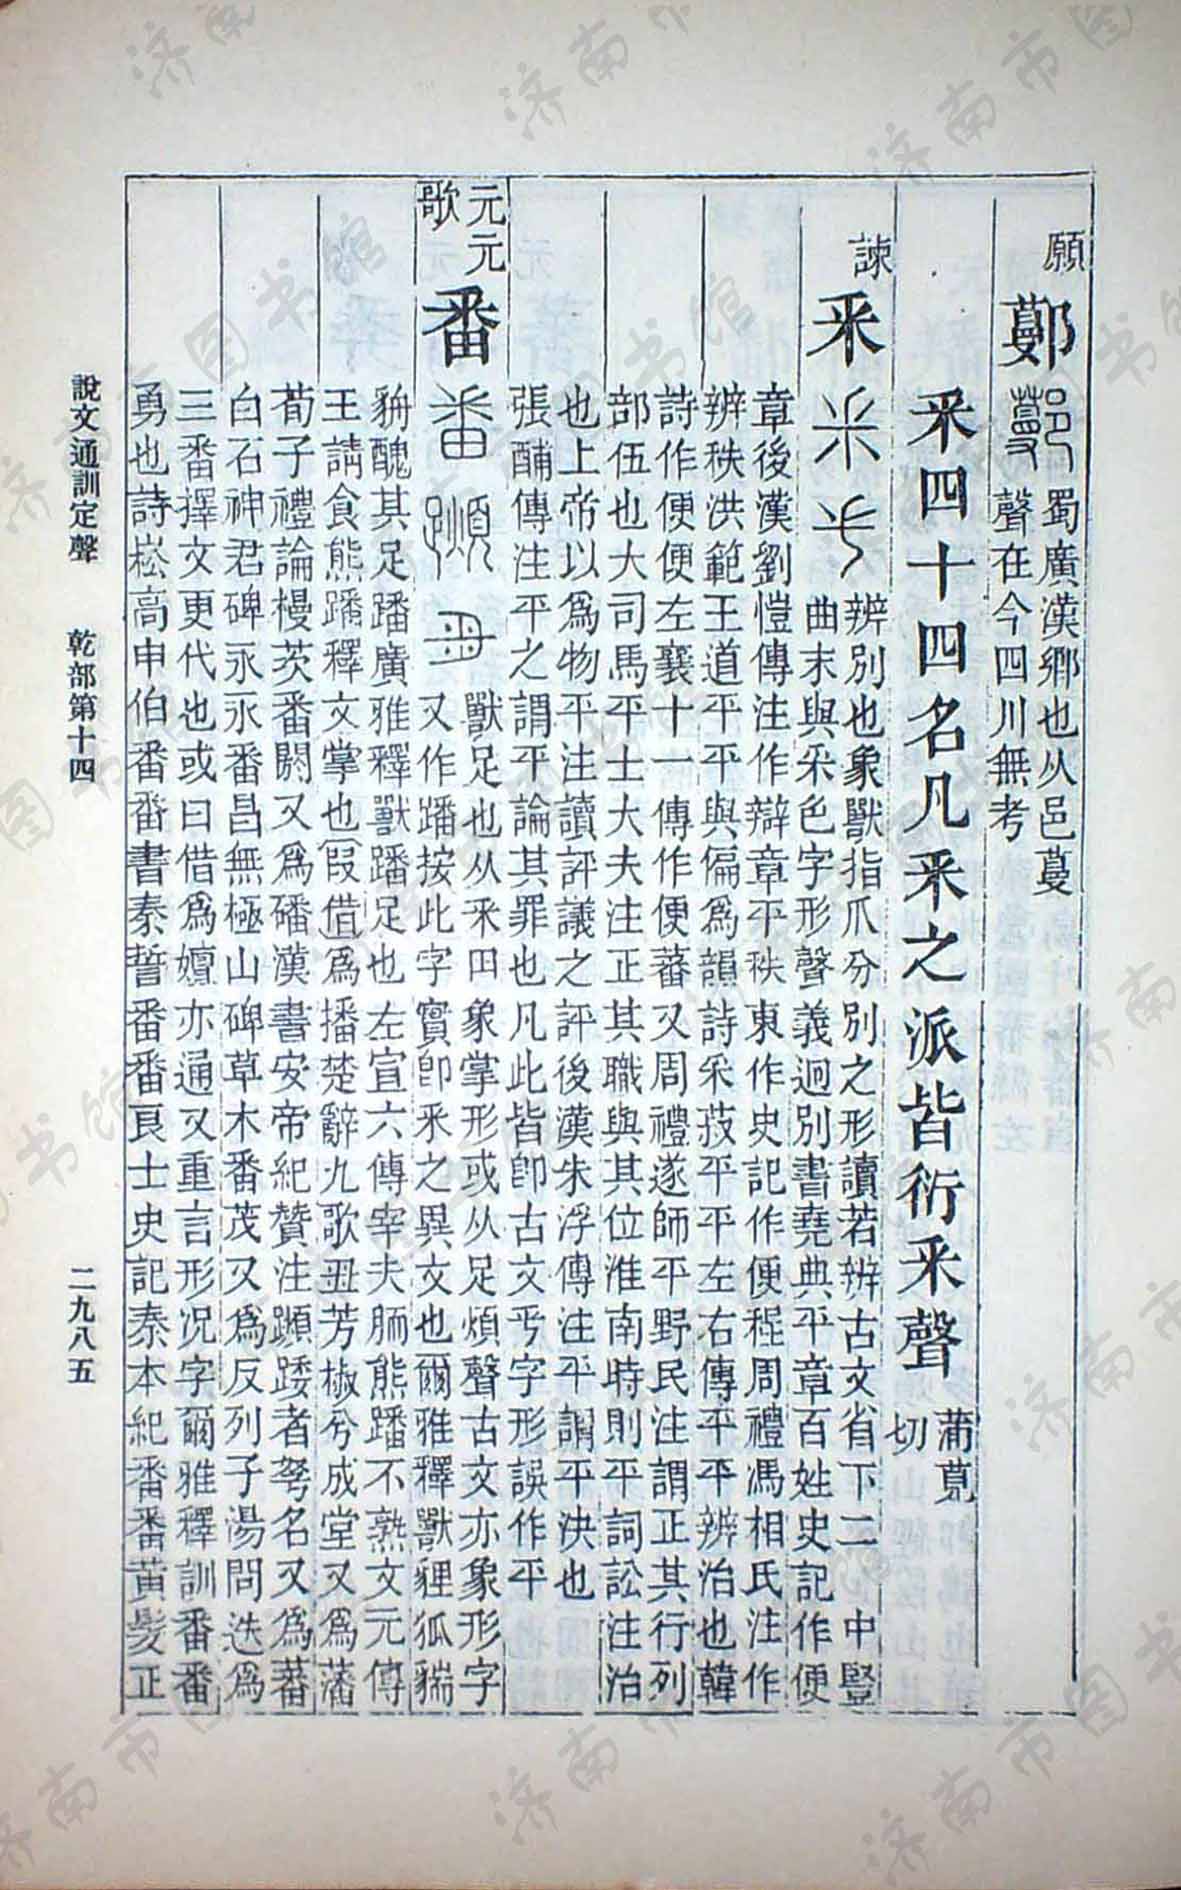 願
鄤
蜀廣漢鄉也从邑蔓
聲在今四川無考
釆四十四名凡釆之派皆衍釆聲
蒲莧
切
諫
釆
辨別也象獸指爪分別之形讀若辨古文省下二中豎
曲末與采色字形聲義迥別書堯典平章百姓史記作便
章後漢劉愷傳注作辯章平秩東作史記作便程周禮馮相氏注作
辨秩洪範王道平平與偏爲韻詩采菽平平左右傳平平辨治也韓
詩作便便左襄十一傳作便蕃又周禮遂師平野民注謂正其行列
部伍也大司馬平士大夫注正其職與其位淮南時則平詞訟注治
也上帝以爲物平注讀評議之評後漢朱浮傳注平謂平決也
張酺傳注平之謂平論其罪也凡此皆卽古文䇂字形誤作平
元元
歌
番
獸足也从釆田象掌形或从足煩聲古文亦象形字
又作蹯按此字實卽釆之異文也爾雅釋獸貍狐貒
貈醜其足蹯廣雅釋獸蹯足也左宣六傳宰夫胹熊蹯不熟文元傳
王請食熊蹯釋文掌也叚借爲播楚辭九歌丑芳椒兮成堂又爲藩
荀子禮論槾茨番閼又爲磻漢書安帝紀贊注蹞踒者弩名又爲蕃
白石神君碑永永番昌無極山碑草木番茂又爲反列子湯問迭爲
三番擇文更代也或曰借爲嬗亦通又重言形況字爾雅釋訓番番
勇也詩崧高申伯番番書秦誓番番良士史記秦本紀番番黃髮正
說文通訓定聲　乾部第十四　二九八五
济南市图书馆